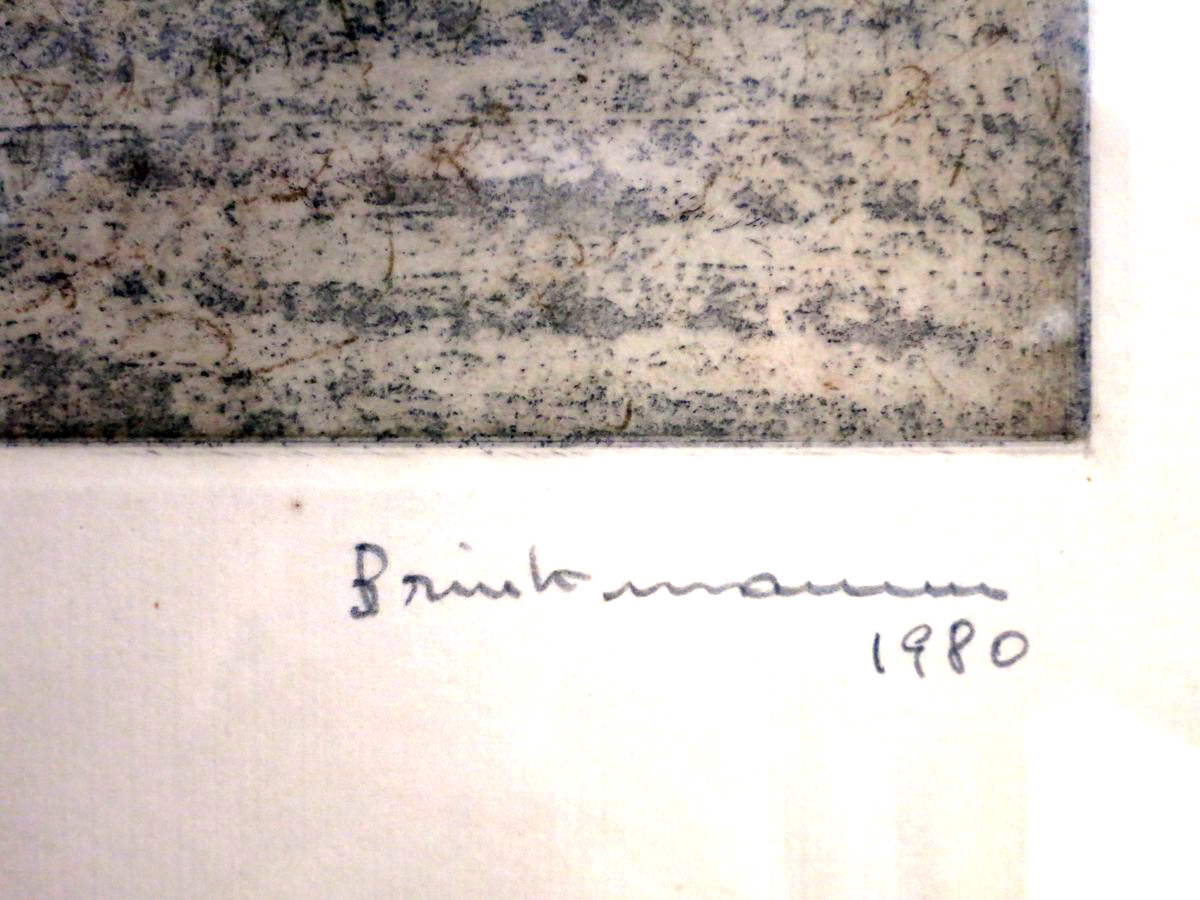 Brinkmann
1980